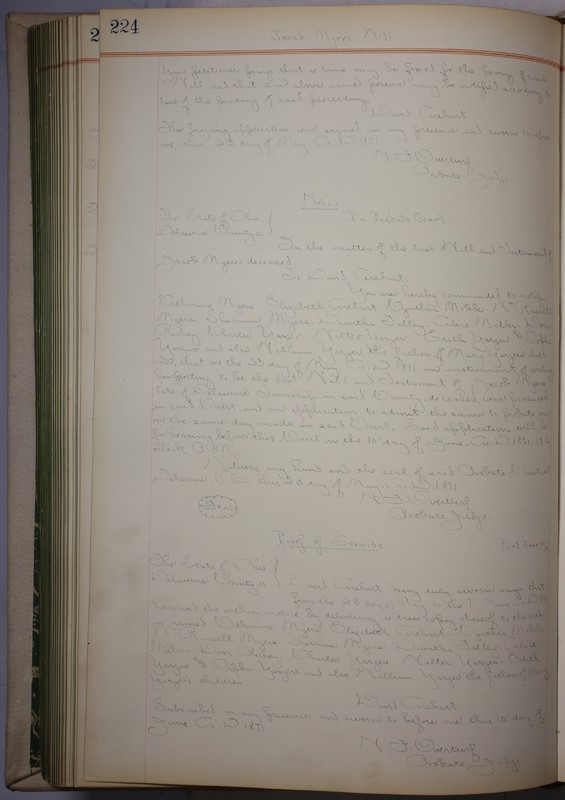 224
Jacob Myers Will
Your petitioner prays that a time may be fixed for the proving of said
Will and that said above named persons may be notified according to
law of the pendency of said proceedings
David Gearhart
The foregoing application was signed in my presence and sworn to before
me, this 23 day of May A.D. 1891
N. F. Overturf
Probate Judge
Notice
The State of Ohio } In Probate Court.
Delaware County ss
In the matter of the last Will and Testament of
Jacob Myers deceased.
To David Gearhart.
You are hereby commanded to notify
Myers Elizabeth Gearhart Cynthia Noble Wm Russell
Myers Sherman Myers Dorotha Talley Alice Miller Dora
Charles Yarger Walter Yarger Edith Yarger &
Yarger and also William Yarger the father of Mary Yargers
that on the 23 day of May A.D. 1891 an instrument of writing
purporting to be the last Will and Testament of Jacob Myers
late of Delaware Township in said County, deceased, was produced
in said Court, and an application to admit the same to probate was
on the same day made in said Court. Said application will be
for hearing before this Court on the 10 day of June A.D. 1891, at
oclock
Witness my hand and the seal of said Probate Court at
Delaware Ohio this 23 day of May A.D. 1891
N. F. Overturf
Seal
Probate Judge
Proof of Service
The State of Ohio }
Delaware County ss David Gearhart being duly sworn says that
from the 23 day of May to the
he served the within notice by delivering a true copy thereof to the with-
in named Myers Elizabeth Gearhart Cynthia Noble
Wm Russell Myers Sherman Myers Dorotha Talley Alice
Miller Dora Charles Yarger Walter Yarger Edith
Yarger & Yarger and also William Yarger the father of Mary
Yargers children
David Gearhart
Subscribed in my presence and sworn to before me this 10 day of
June A.D. 1891
N. F. Overturf
Probate Judge